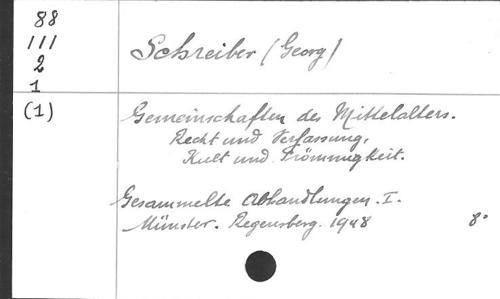 88
111
2
1
(1)
Schreiber (Georg)
Gemeinschaften des Mittelalters.
Recht und Verfassung,
Kult und Frömmigkeit.
Gesammelte Abhandlungen. I.
Münster. Regensberg. 1948
8°